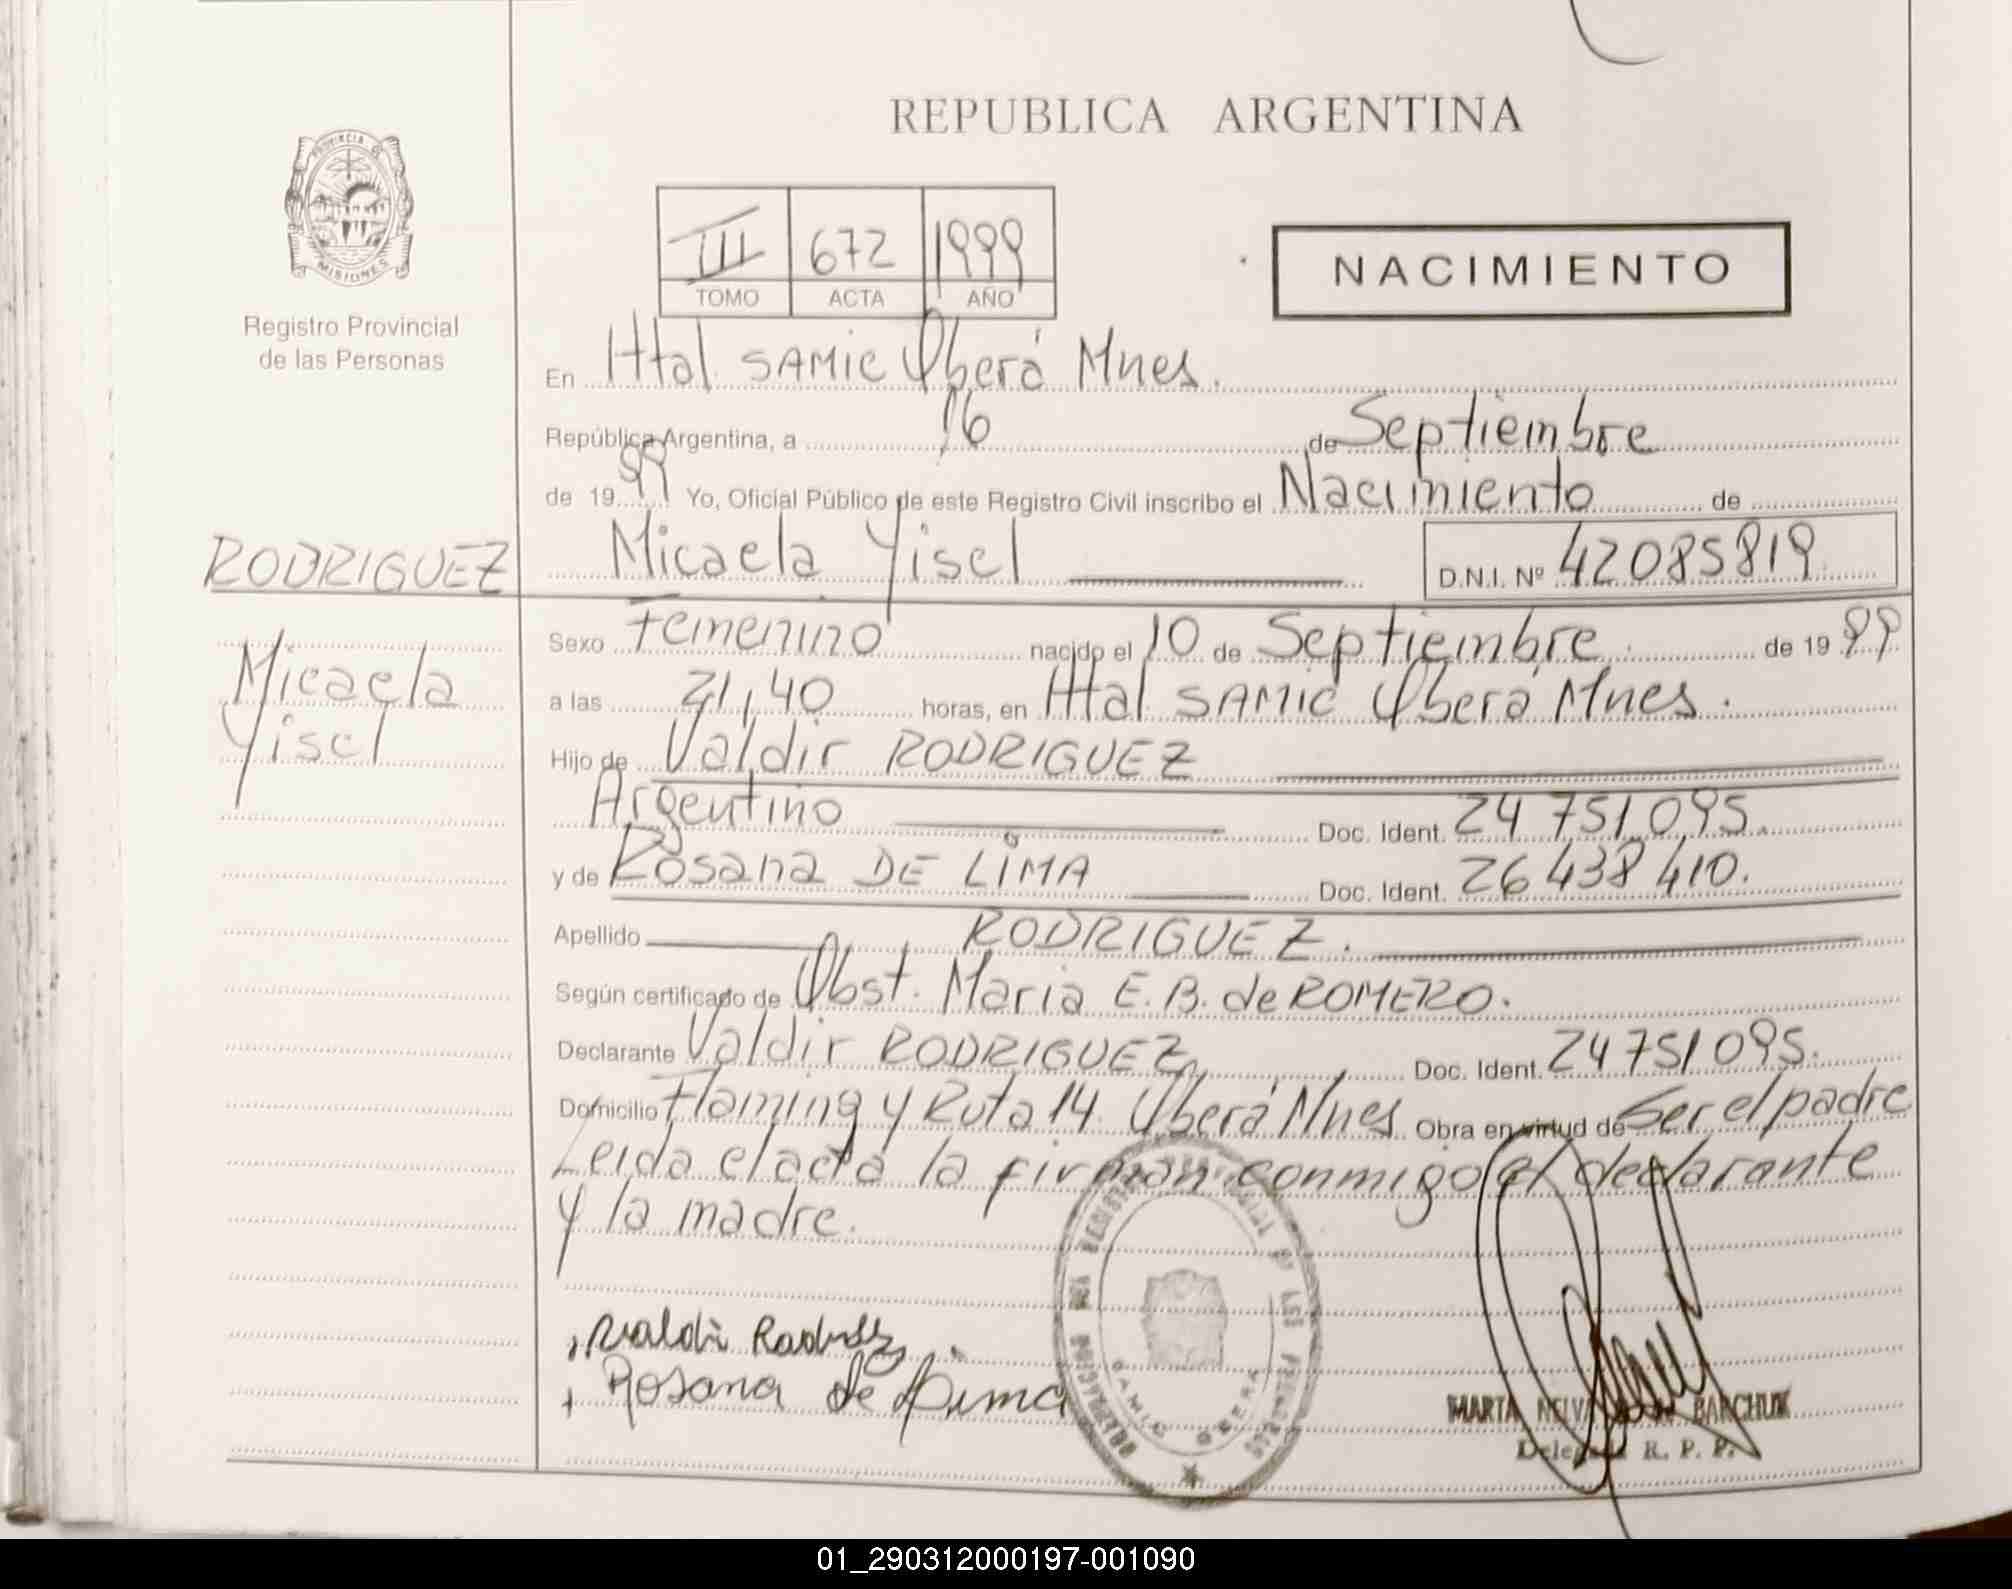 REPUBLICA ARGENTINA
PROVINCIA DE
MISIONES
Registro Provincial
de las Personas
III 672 1999
TOMO ACTA AÑO
NACIMIENTO
En Htal SAMIC Oberá Mnes.
República Argentina, a 16 de Septiembre
de 1999 Yo, Oficial Público de este Registro Civil inscribo el Nacimiento de
RODRIGUEZ Micaela Yisel D.N.I. Nº 42085819
Micaela
Yisel
Sexo Femenino nacido el 10 de Septiembre de 1999
a las 21,40 horas, en Htal SAMIC Oberá Mnes.
Hijo de Valdir RODRIGUEZ
Argentino Doc. Ident. 24 751 095.
y de Rosana DE LIMA Doc. Ident. 26 438 410.
Apellido RODRIGUEZ.
Según certificado de Obst. Maria E. B. de ROMERO.
Declarante Valdir RODRIGUEZ Doc. Ident. 24 751 095.
Domicilio Flaming y Ruta 14 Oberá Mnes Obra en virtud de Ser el padre
Leida el acta la firman conmigo el declarante
y la madre.
Rosana de Lima
SAMIC OBERA
MARTA BANCHUK
Delegada R. P. P.
01_290312000197-001090